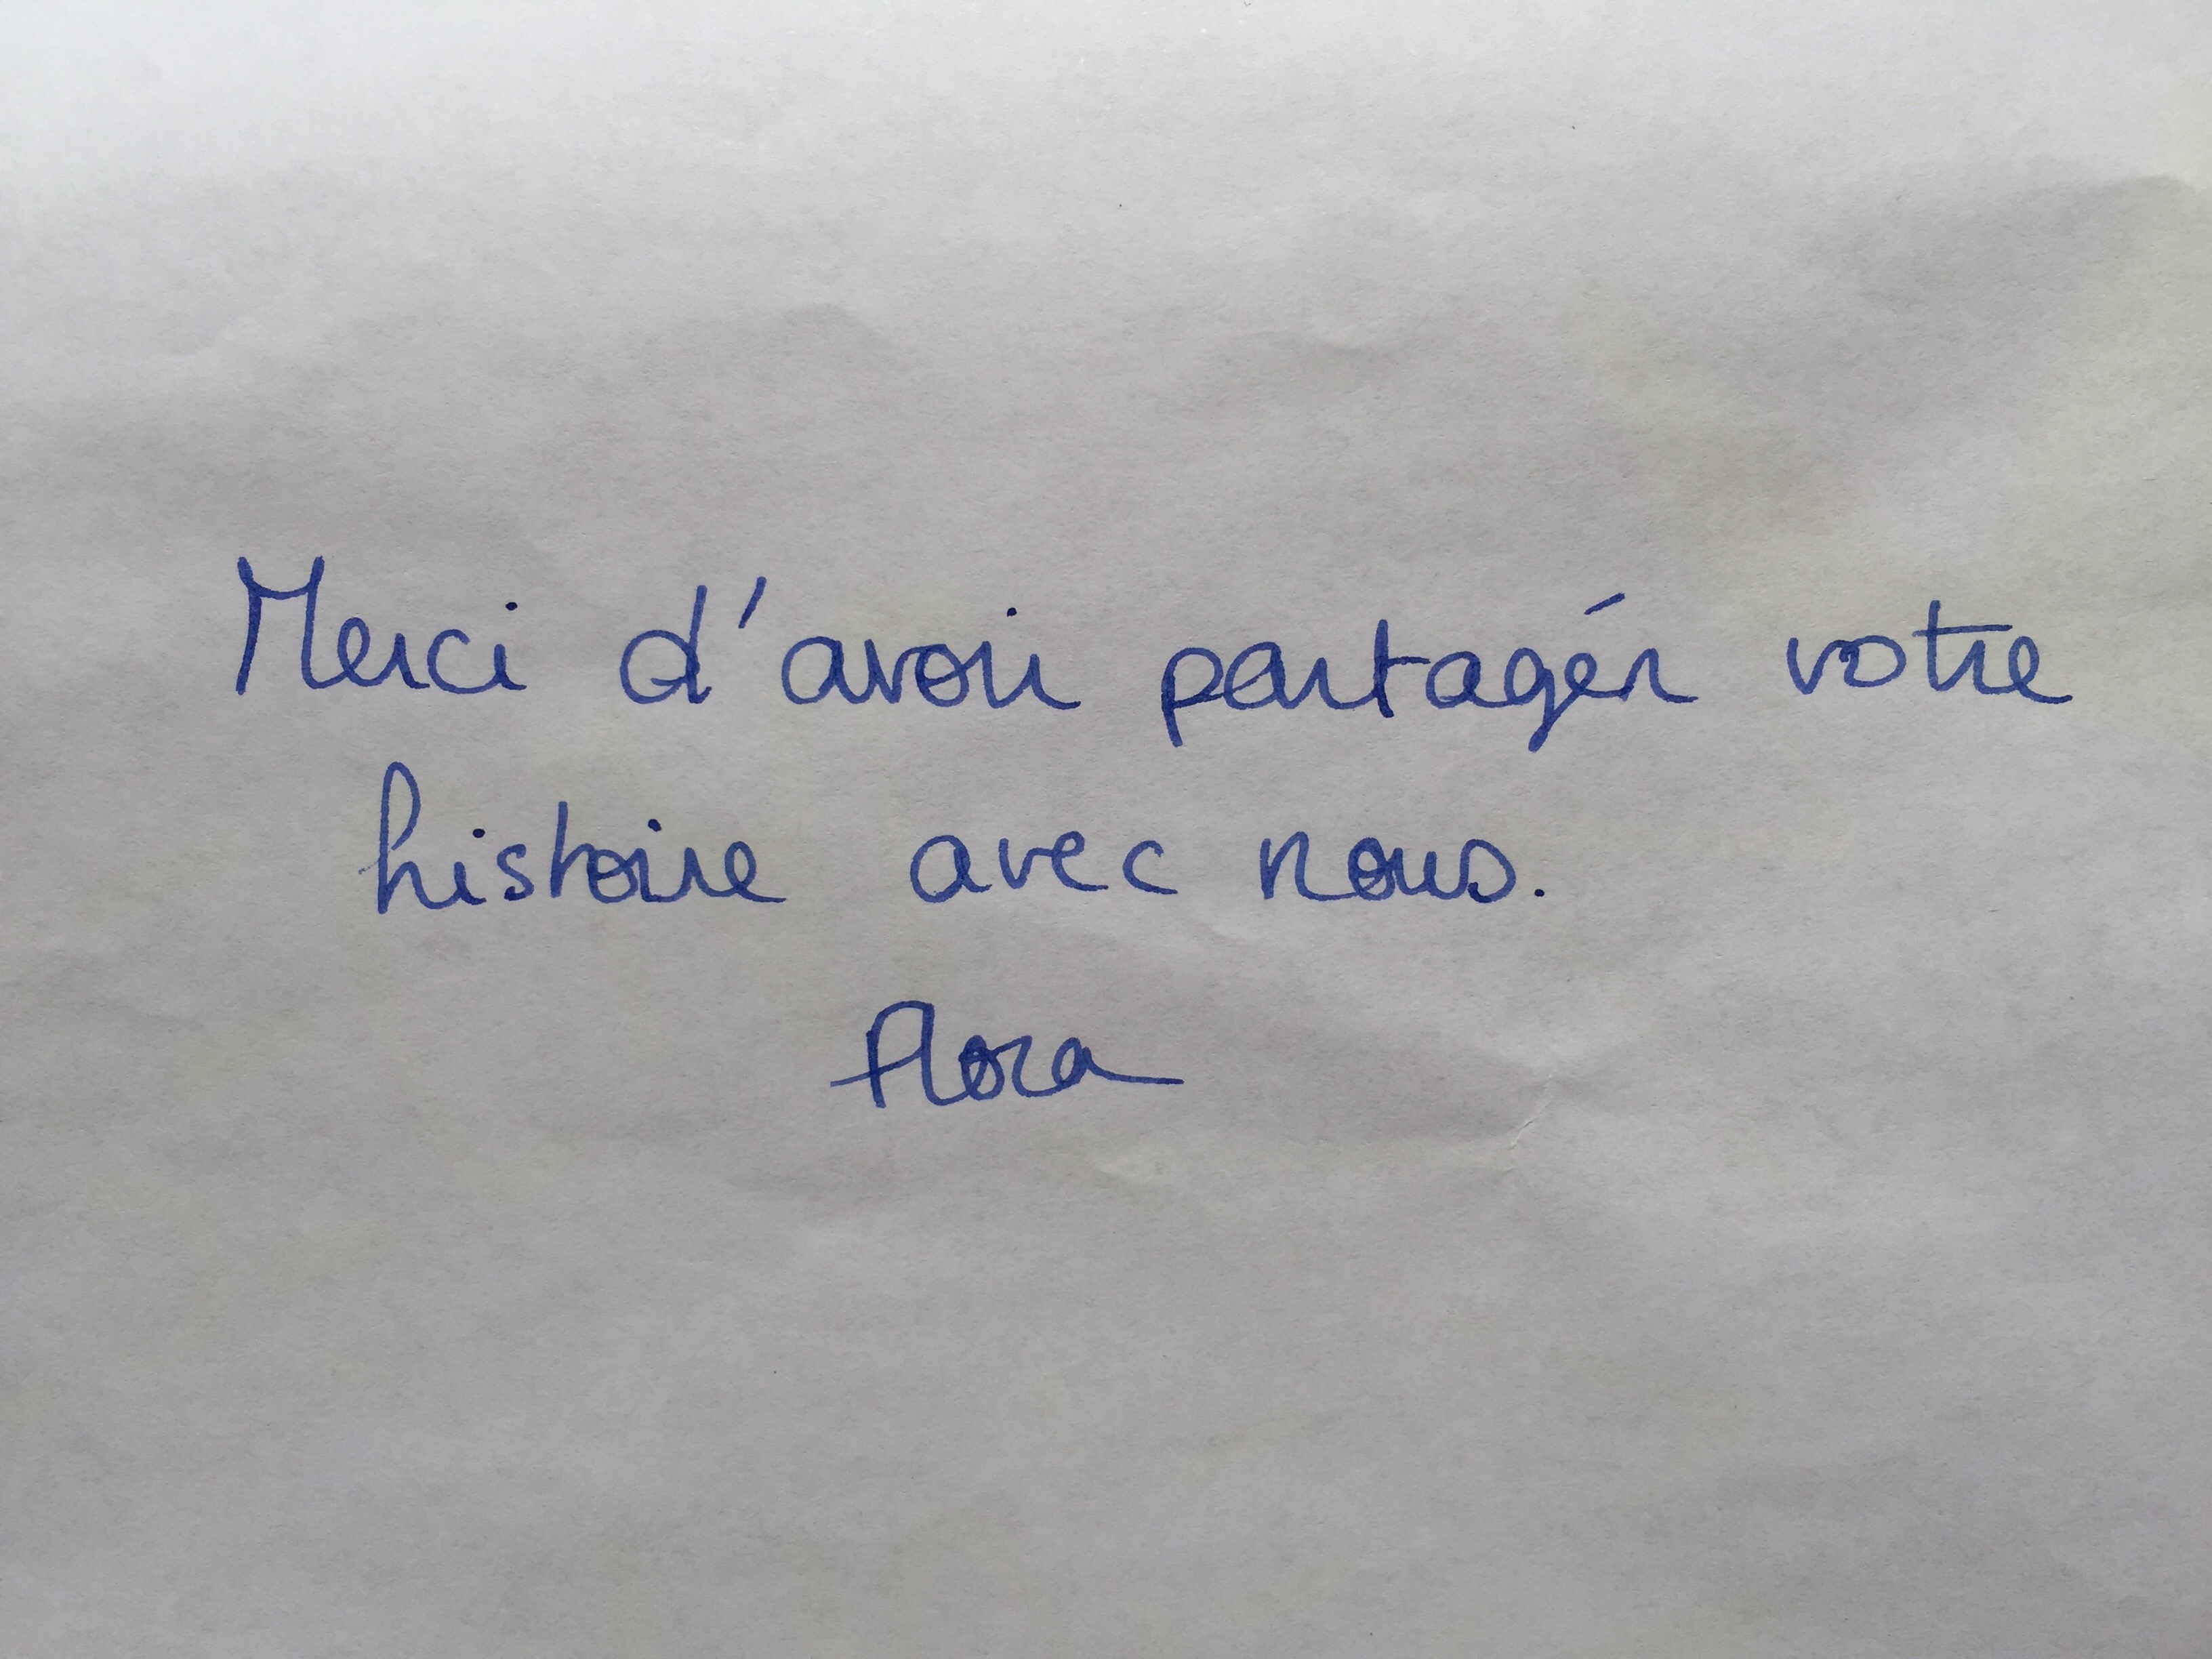 Merci d'avoir partagér votre
histoire avec nous.
Flora